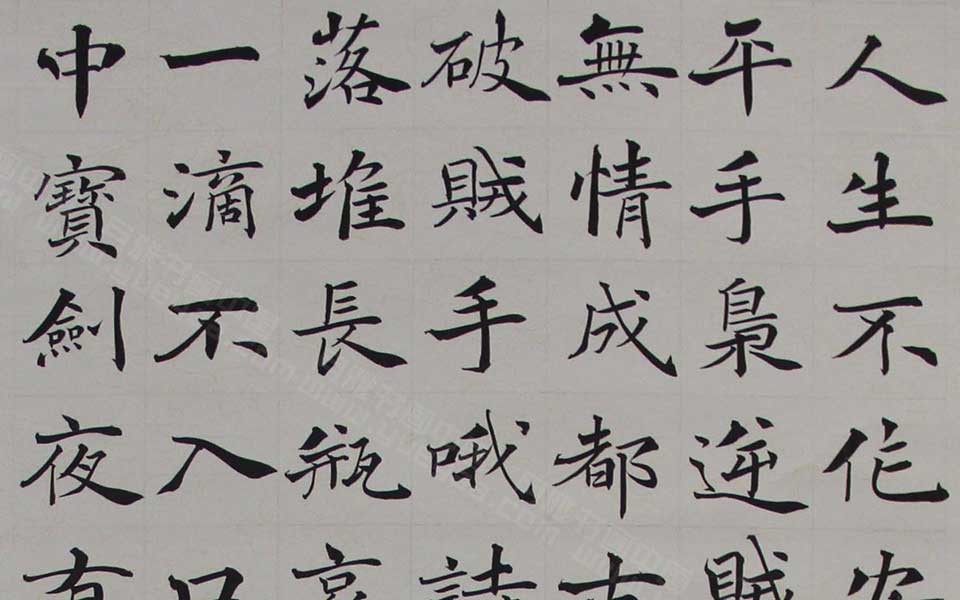 人生不作安
平手梟逆賊
無情成都古
破賊手哦詩
落堆長瓶哀
一滴不入口
中寶劍夜有